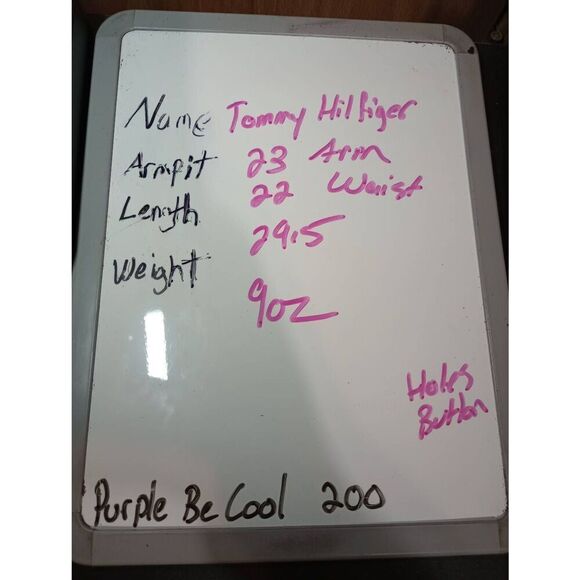 Name Tommy Hilfiger
Armpit 23 Arm
22 Waist
Length 29.5
Weight 9oz
Holes
Button
Purple Be Cool 200